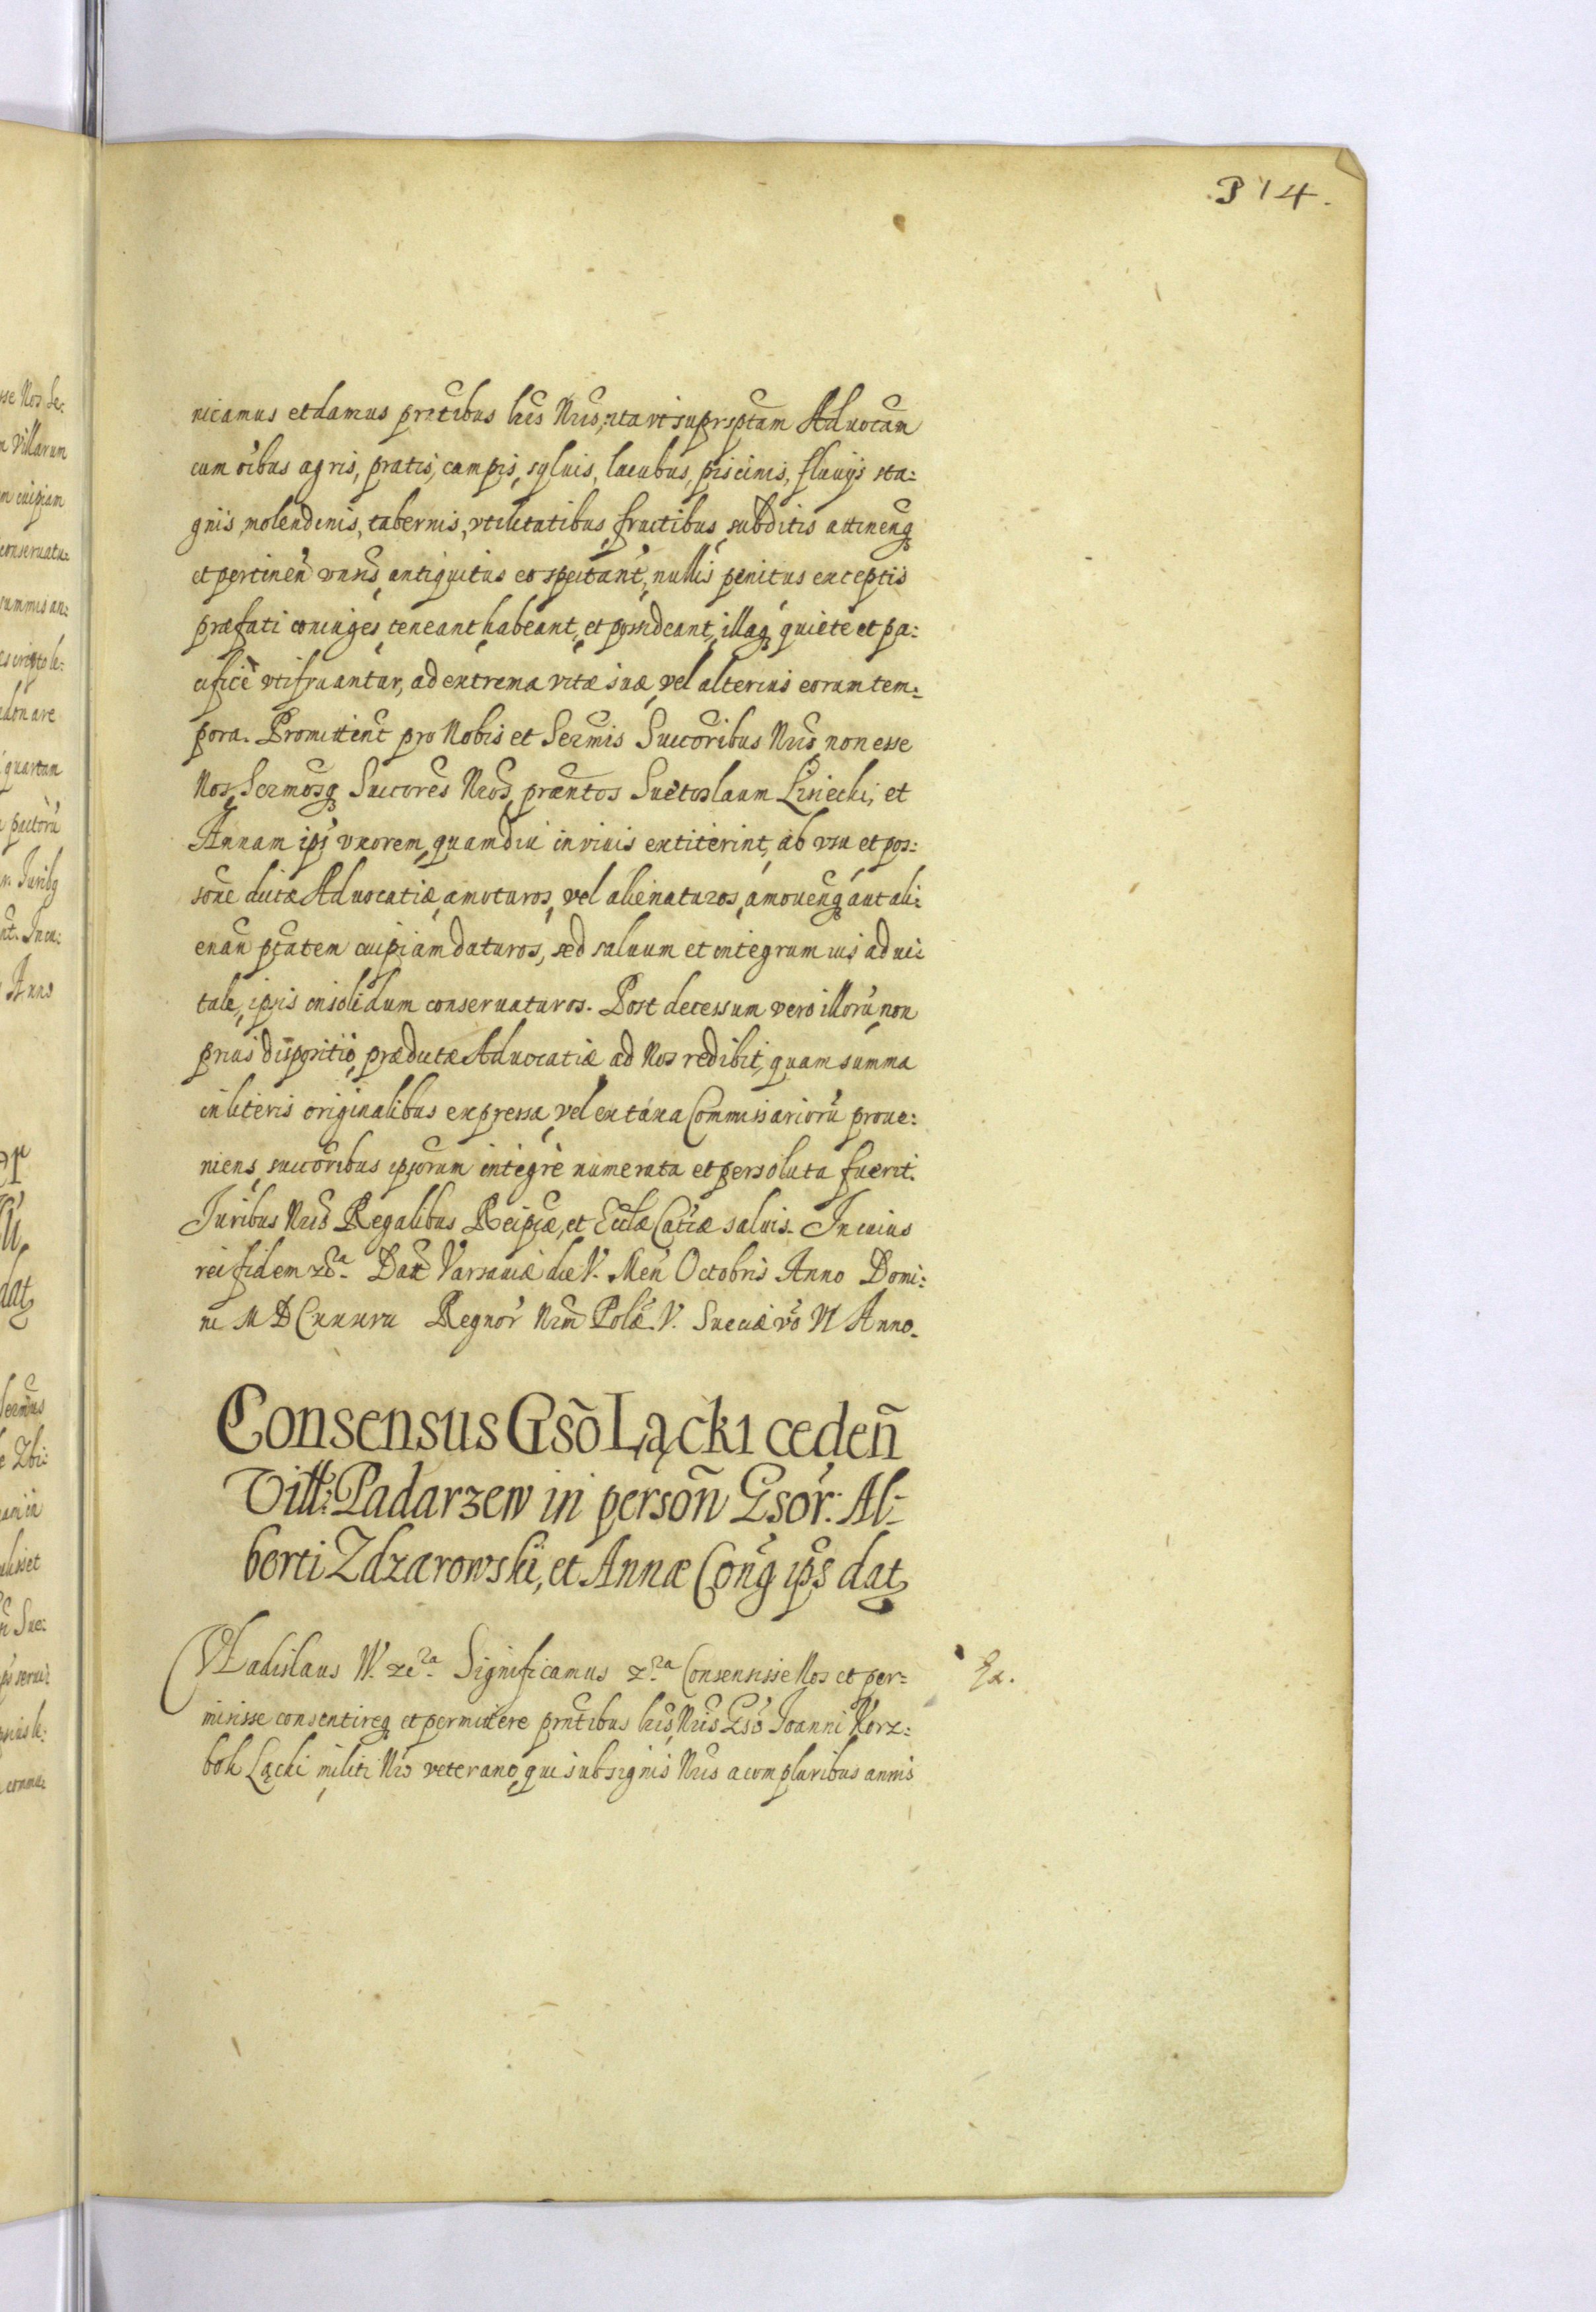 314.
nicamus et damus prntibus lris Nris, ita vt suprsptam Aduocam
cum oibus agris, pratis, campis, syluis, lacubus, piscinis, fluuijs sta:
gnis, molendinis, tabernis, vtilitatibus, fructibus, subditis attinenq
et pertinen vnrsis, antiquitus eo spectant, nullis penitus exceptis
præfati coniuges, teneant habeant, et possideant, illaq quiete et pa:
cifice vtifruantur, ad extrema vitæ suæ, vel alterius eorum tem:
pora. Promittent pro Nobis et Sermis Succoribus Nris, non esse
Nos, Sermosq Succores Nros, præntos Suetoslaum Lisiecki, et
Annam ips vxorem, quamdiu in viuis extiterint, ab vsu et pos:
sone dictæ Aduocatiæ, amoturos, vel alienaturos, amouenq aut ali:
enan ptatem cuipiam daturos, sed saluum et integrum ius adui:
tale, ipsis in solidum conseruaturos. Post decessum vero illorũ, non
prius dispositio, prædictæ Aduocatiæ ad Nos redibit, quam summa
in literis originalibus expressa, vel ex taxa Commissariorũ proue:
niens, succoribus ipsorum integrè numerata et persoluta fuerit.
Juribus Nris Regalibus Reipcæ, et Ecclæ Catcæ saluis. In cuius
rei fidem etca. Dat Varsauiæ die V. Men Octobris Anno Domi:
ni MDCxxxvii Regnor Nrm Polæ. V. Sueciæ vo VI Anno.
Consensus Gsõ Lącki cedeñ
Vill: Padarzew in persoñ Gsor: Al:
berti Zdzarowski, et Annæ Cong ips dat
Vladislaus IV. etca. Significamus etca Consensisse Nos et per:
misisse consentireq et permittere prntibus lris, Nris Gso Joanni Korz:
bok Lącki militi Nro veterano, qui sub signis Nris a compluribus annis